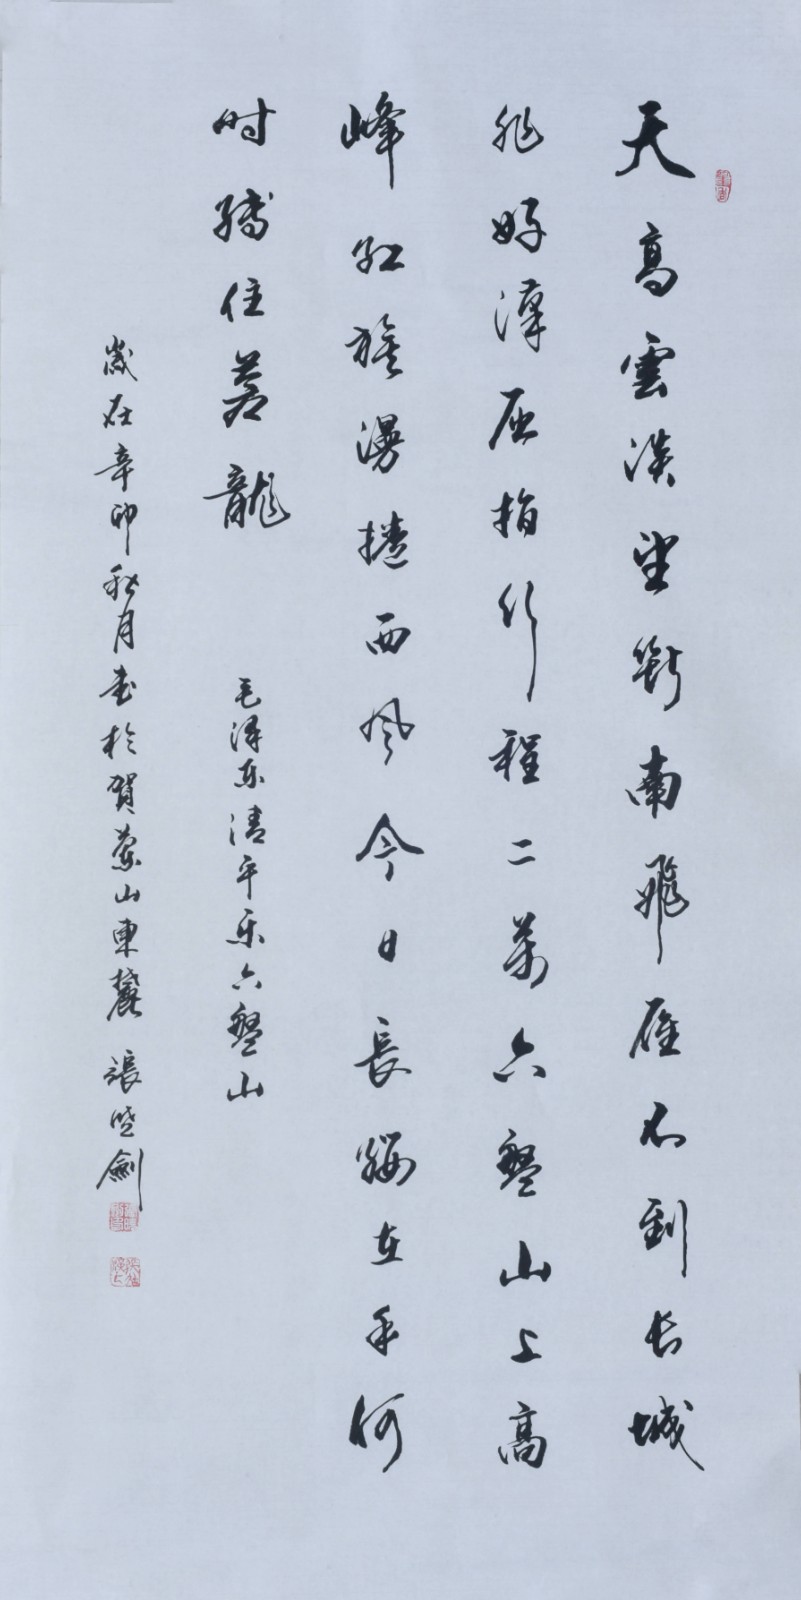 天高雲淡望斷南飛雁不到长城
非好漢屈指行程二萬六盤山上高
峰红旗漫捲西风今日長纓在手何
时縛住蒼龍
毛泽东清平乐六盤山
歲在辛卯秋月书於賀蘭山東麓 張 劍